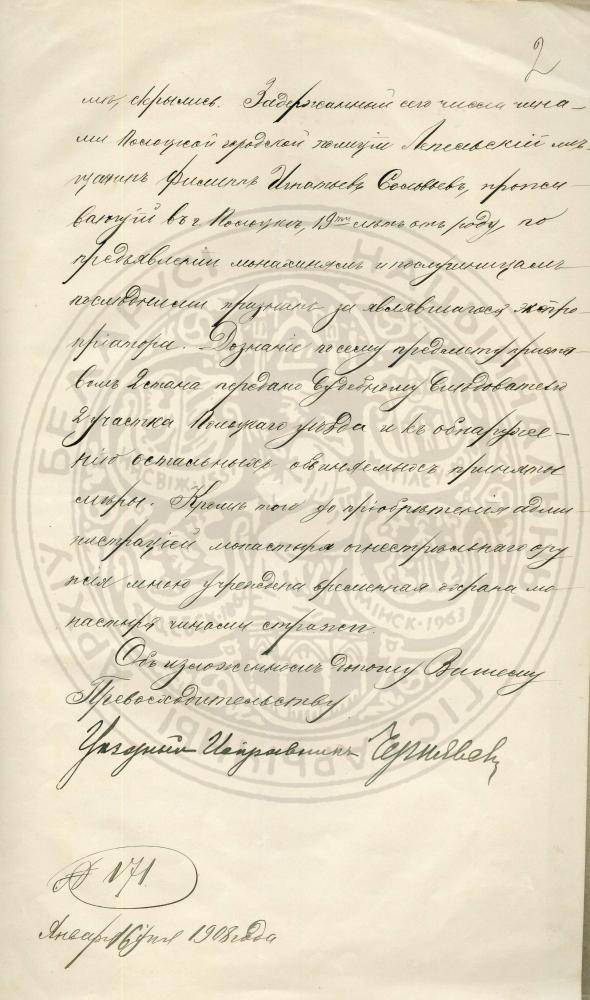 2
ми, скрылись. Задержанный сего числа чина-
ми Полоцкой городской полиціи Лепельскій мѣ-
щанинъ Филиппъ Игнатьевъ Соловьевъ, прожи-
вающій въ г. Полоцкѣ, 19ти лѣтъ отъ роду, по
предъявленіи монахинямъ и послушницамъ
послѣдними признанъ за являвшагося экспро-
пріатора. Дознаніе по сему предмету приста-
вомъ 2 стана передано Судебному Слѣдователю
2 участка Полоцкаго уѣзда и къ обнаруже-
нію остальныхъ обвиняемыхъ приняты
мѣры. Кромѣ того до пріобрѣтенія адми-
нистраціей монастыря огнестрѣльнаго ору
жія мною учреждена временная охрана мо-
настыря чинами стражи.
Объ изложенномъ доношу Вашему
Превосходительству
Уѣздный Исправникъ
№ 171
Января 16 дня 1908 года